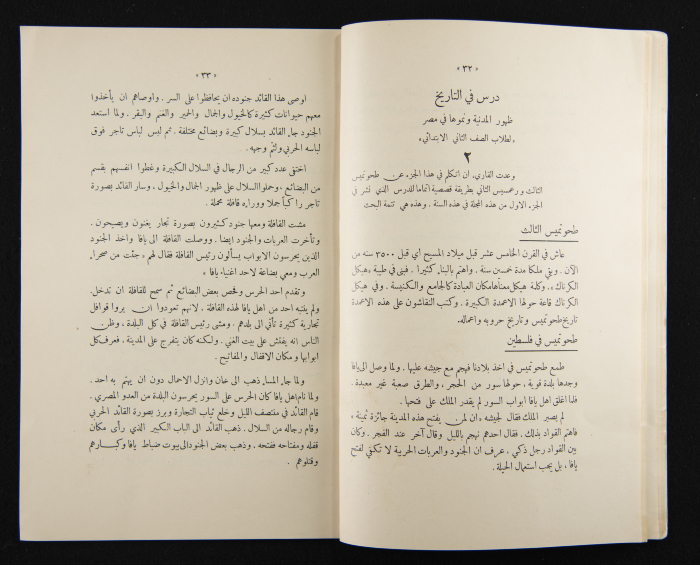 «٣٢»
درس في التاريخ
ظهور المدنية ونموها في مصر
«لطلاب الصف الثاني الابتدائي»
٢
وعدت القارىء ان اتكلم في هذا الجزء عن طحوتميس
الثالث و رعمسيس الثاني بطريقة قصصية اتماما للدرس الذي نشر في
الجزء الاول من هذه المجلة في هذه السنة . وهذه هي تتمة البحث
طحوتميس الثالث
عاش في القرن الخامس عشر قبل ميلاد المسيح اي قبل ٣٥٠٠ سنه من
الآن . وبقي ملكا مدة خمسين سنة . واهتم بالبناء كثيرا . فبنى في طيبة «هيكل
الكرناك» ، وكلمة هيكل معناها مكان العبادة كالجامع والكنيسة . وفي هيكل
الكرناك قاعة حولها الاعمدة الكبيرة . وكتب النقاشون على هذه الاعمدة
تاريخ طحوتميس وتاريخ حروبه واعماله .
طحوتميس في فلسطين
طمع طحوتميس في اخذ بلادنا فهجم مع جيشه عليها . ولما وصل الى يافا
وجدها بلدة قوية ، حولها سور من الحجر ، والطرق صعبة غير معبدة .
فلما اغلق اهل يافا ابواب السور لم يقدر الملك على فتحها .
لم يصبر الملك فقال لجيشه «ان لمن يفتح هذه المدينة جائزة ثمينة»
فاهتم القواد بذلك . فقال احدهم نهجم بالليل وقال آخر عند الفجر . وكان
بين القواد رجل ذكي ، عرف ان الجنود والعربات الحربية لا تكفي لفتح
يافا ، بل يجب استعمال الحيلة .
«٣٣»
اوصى هذا القائد جنوده ان يحافظوا على السر . واوصاهم ان يأخذوا
معهم حيوانات كثيرة كالخيول والجمال والحمير والغنم والبقر . ولما استعد
الجنود جاء القائد بسلال كبيرة وبضائع مختلفة . ثم لبس لباس تاجر فوق
لباسه الحربي ولثم وجهه .
اختفى عدد كبير من الرجال في السلال الكبيرة وغطوا انفسهم بقسم
من البضائع ، وحملوا السلال على ظهور الجمال والخيول ، وسار القائد بصورة
تاجر راكباً جملا ووراءه قافلة محملة .
مشت القافلة ومعها جنود كثيرون بصورة تجار يغنون ويصيحون .
وتأخرت العربات والجنود ايضا . ووصلت القافلة الى يافا واخذ الجنود
الذين يحرسون الابواب يسألون رئيس القافلة فقال لهم «جئت من صحراء
العرب ومعي بضاعة لاحد اغنياء يافا»
وتقدم احد الحرس وفحص بعض البضائع ثم سمح للقافلة ان تدخل .
ولم ينتبه احد من اهل يافا لهذه القافلة . لانهم تعودوا ان يروا قوافل
تجارية كثيرة تأتي الى بلدهم . ومشى رئيس القافلة في كل البلدة ، وظن
الناس انه يفتش على بيت الغني . ولكنه كان يتفرج على المدينة ، فعرف كل
ابوابها و مكان الاقفال والمفاتيح .
ولما جاء المساء ذهب الى خان وانزل الاحمال دون ان يهتم به احد .
ولما نام اهل يافا كان الحرس على السور يحرسون البلدة من العدو المصري .
قام القائد في منتصف الليل وخلع ثياب التجارة وبرز بصورة القائد الحربي
وقام رجاله من السلال . ذهب القائد الى الباب الكبير الذي رأى مكان
قفله ومفتاحه ففتحه . وذهب بعض الجنود الى بيوت ضباط يافا وكبارهم
وقتلوهم .